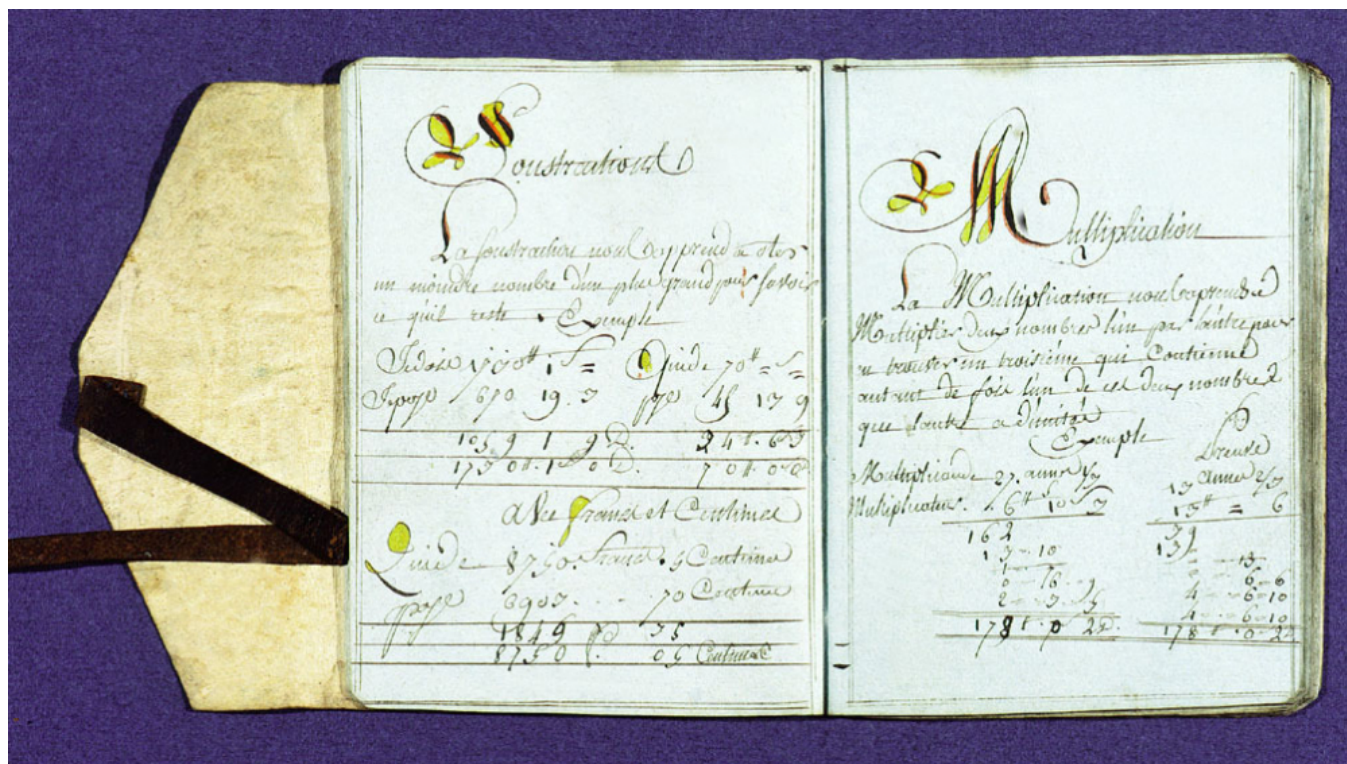 Soustractions
La soustraction nous apprend a oter
un moindre nombre d'un plus grand pour savoir
ce qu'il reste. Exemple
Je dois 1 S = Qui de 70 tt = S =
Je paye 670 19 3 paye 45 13 9
1059 1 9 D. 24
avec francs et Centimes
Qui de 8750. francs. 5 Centime
paye 6903 70 Centime
1846 35
8750 05 Centimes
Multiplication
La Multiplication nous aprend a
Multiplier deux nombres l'un par lautre pour
en trouver un troisiéme qui Contienne
autant de fois l'un de ces deux nombres
que lautre a dunités
Exemple
Preuve
Multiplicande 27. annes 1/3
Multiplicateur. 6 tt 10 S 3
13 annes 2/3
13 tt = 6
162
39
13
13 - 10
0 - 16 - 9
2 - 3 - 5
4 - 6 - 10
4 - 6 - 10
178 tt. 0 2 D.
178 tt. 0 2 D